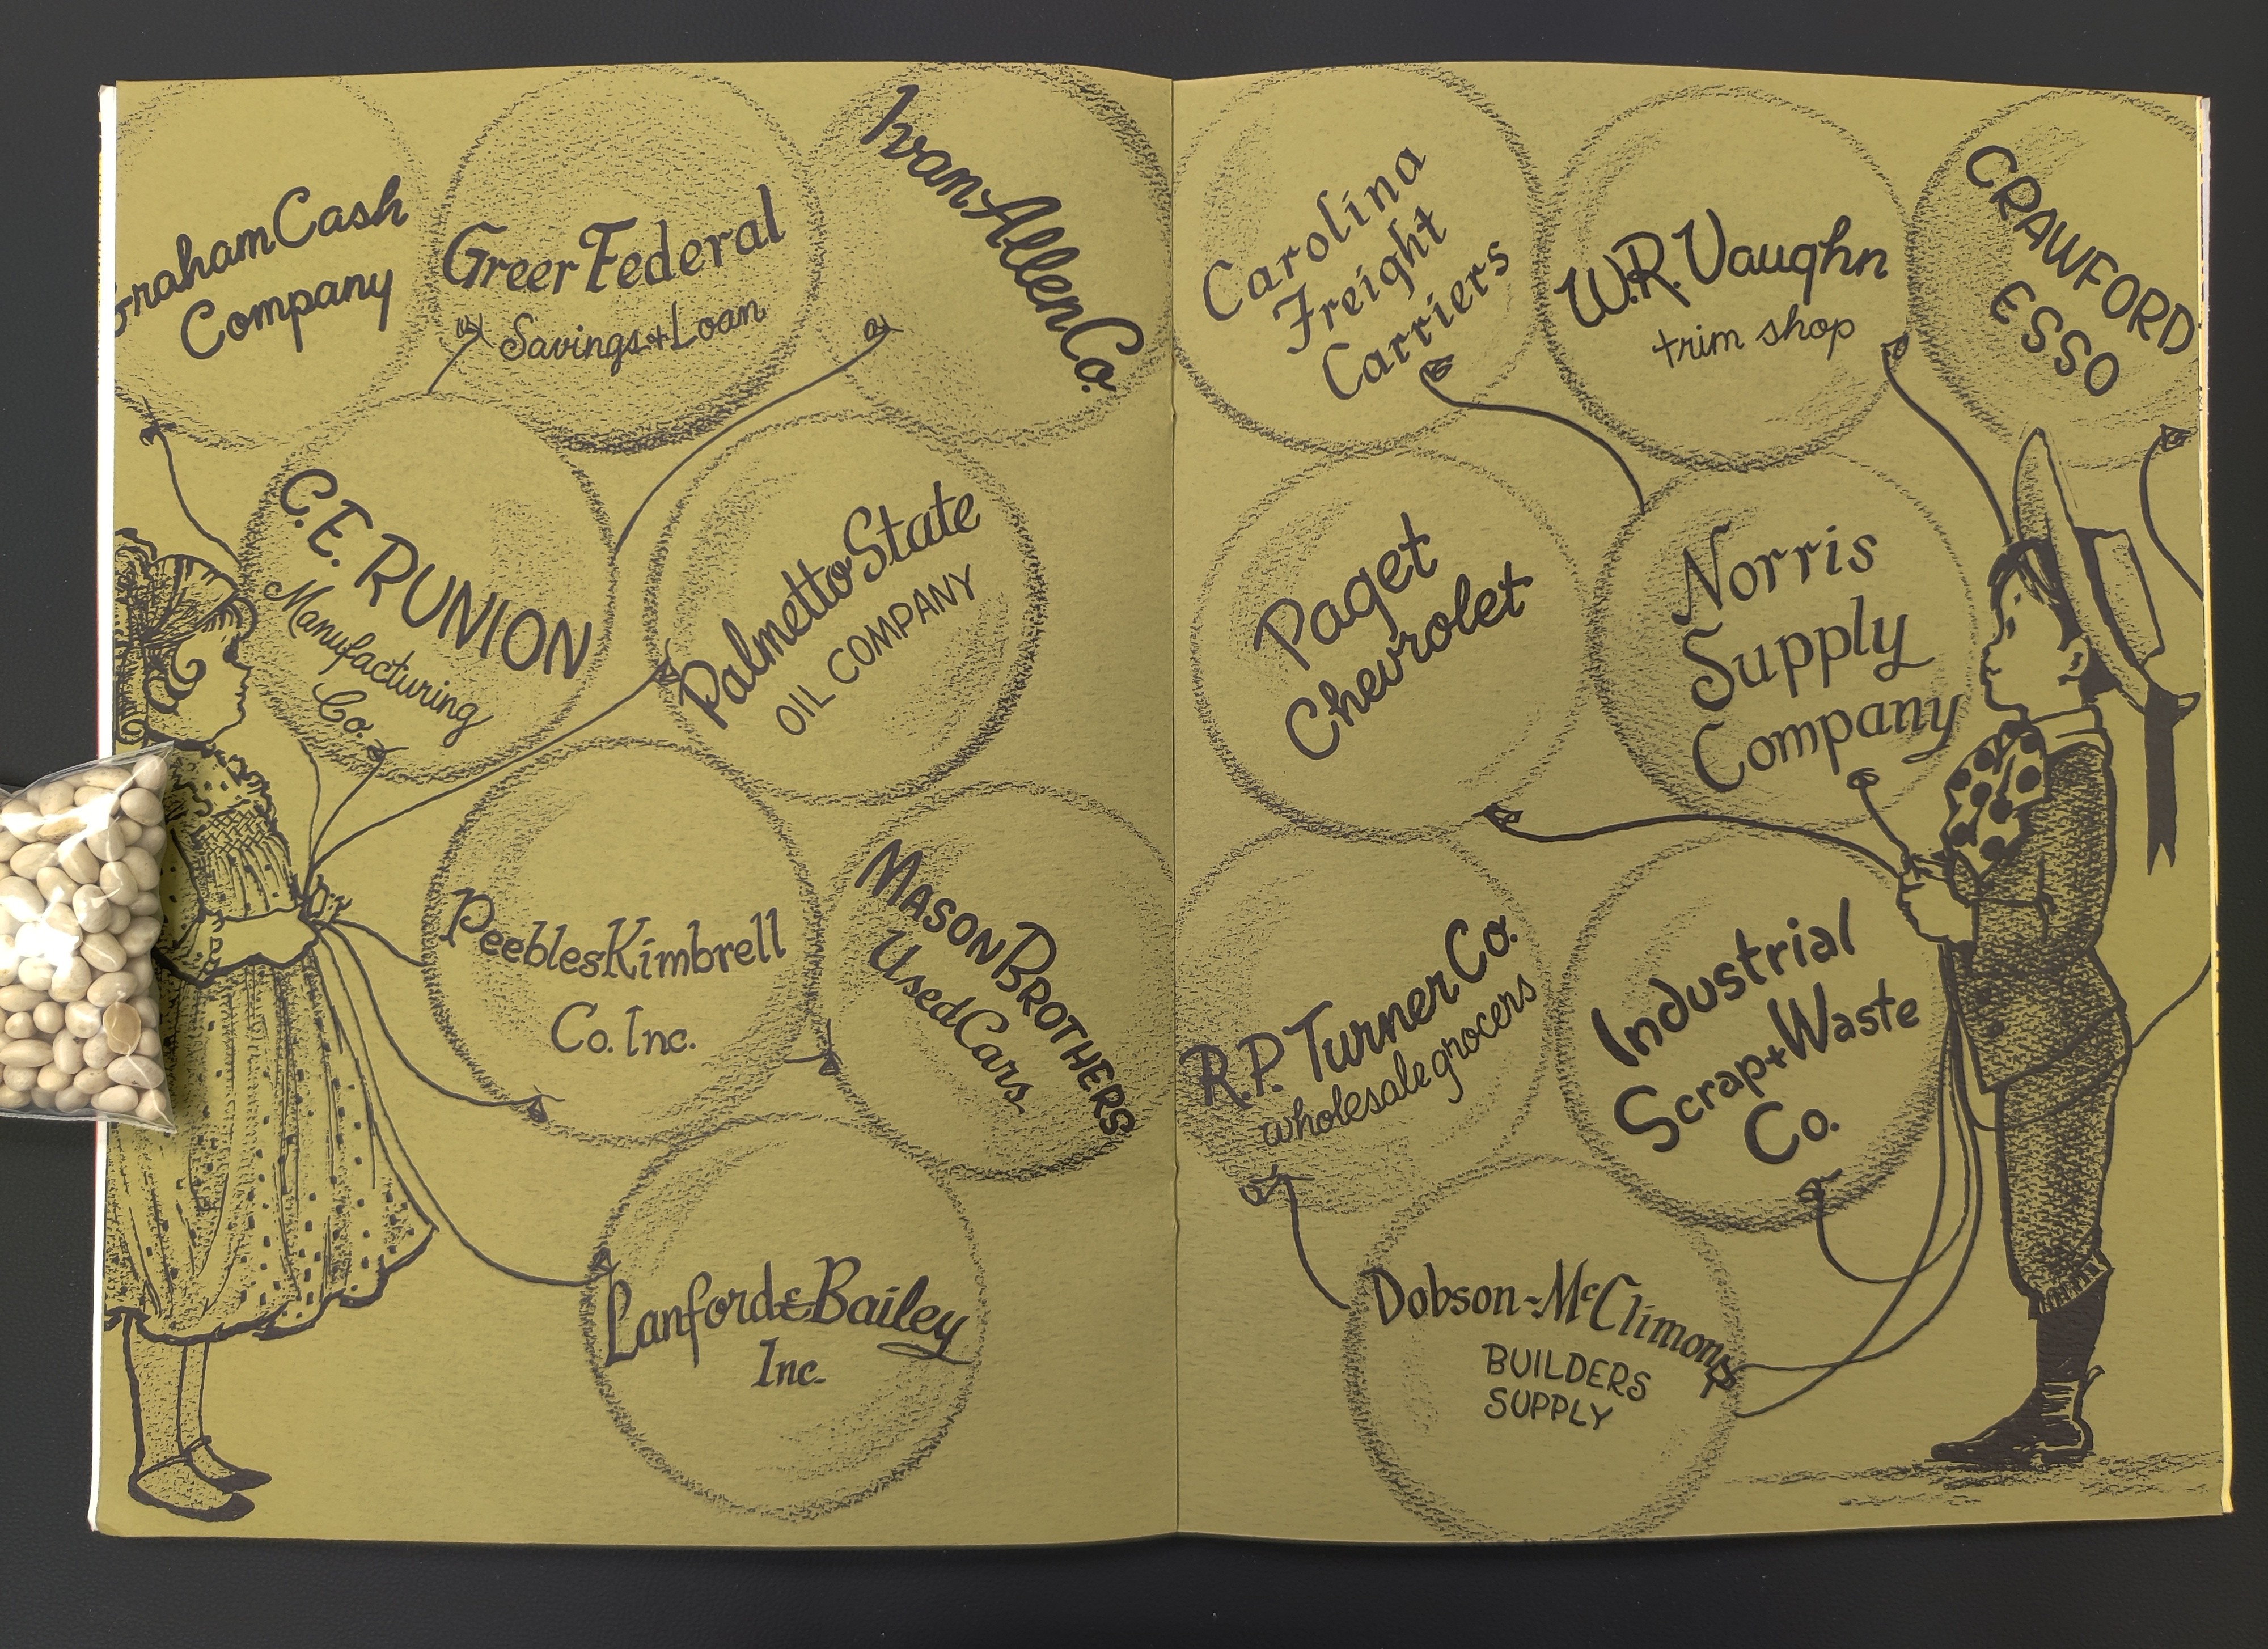 Graham Cash
Company
Greer Federal
Savings + Loan
Ivan Allen Co.
C.E. RUNION
Manufacturing
Co.
Palmetto State
OIL COMPANY
Peebles Kimbrell
Co. Inc.
MASON BROTHERS
Used Cars
Lanford & Bailey
Inc.
Carolina
Freight
Carriers
W.R. Vaughn
trim shop
CRAWFORD
ESSO
Paget
Chevrolet
Norris
Supply
Company
R.P. Turner Co.
wholesale grocers
Industrial
Scrap + Waste
Co.
Dobson-McClimons
BUILDERS
SUPPLY